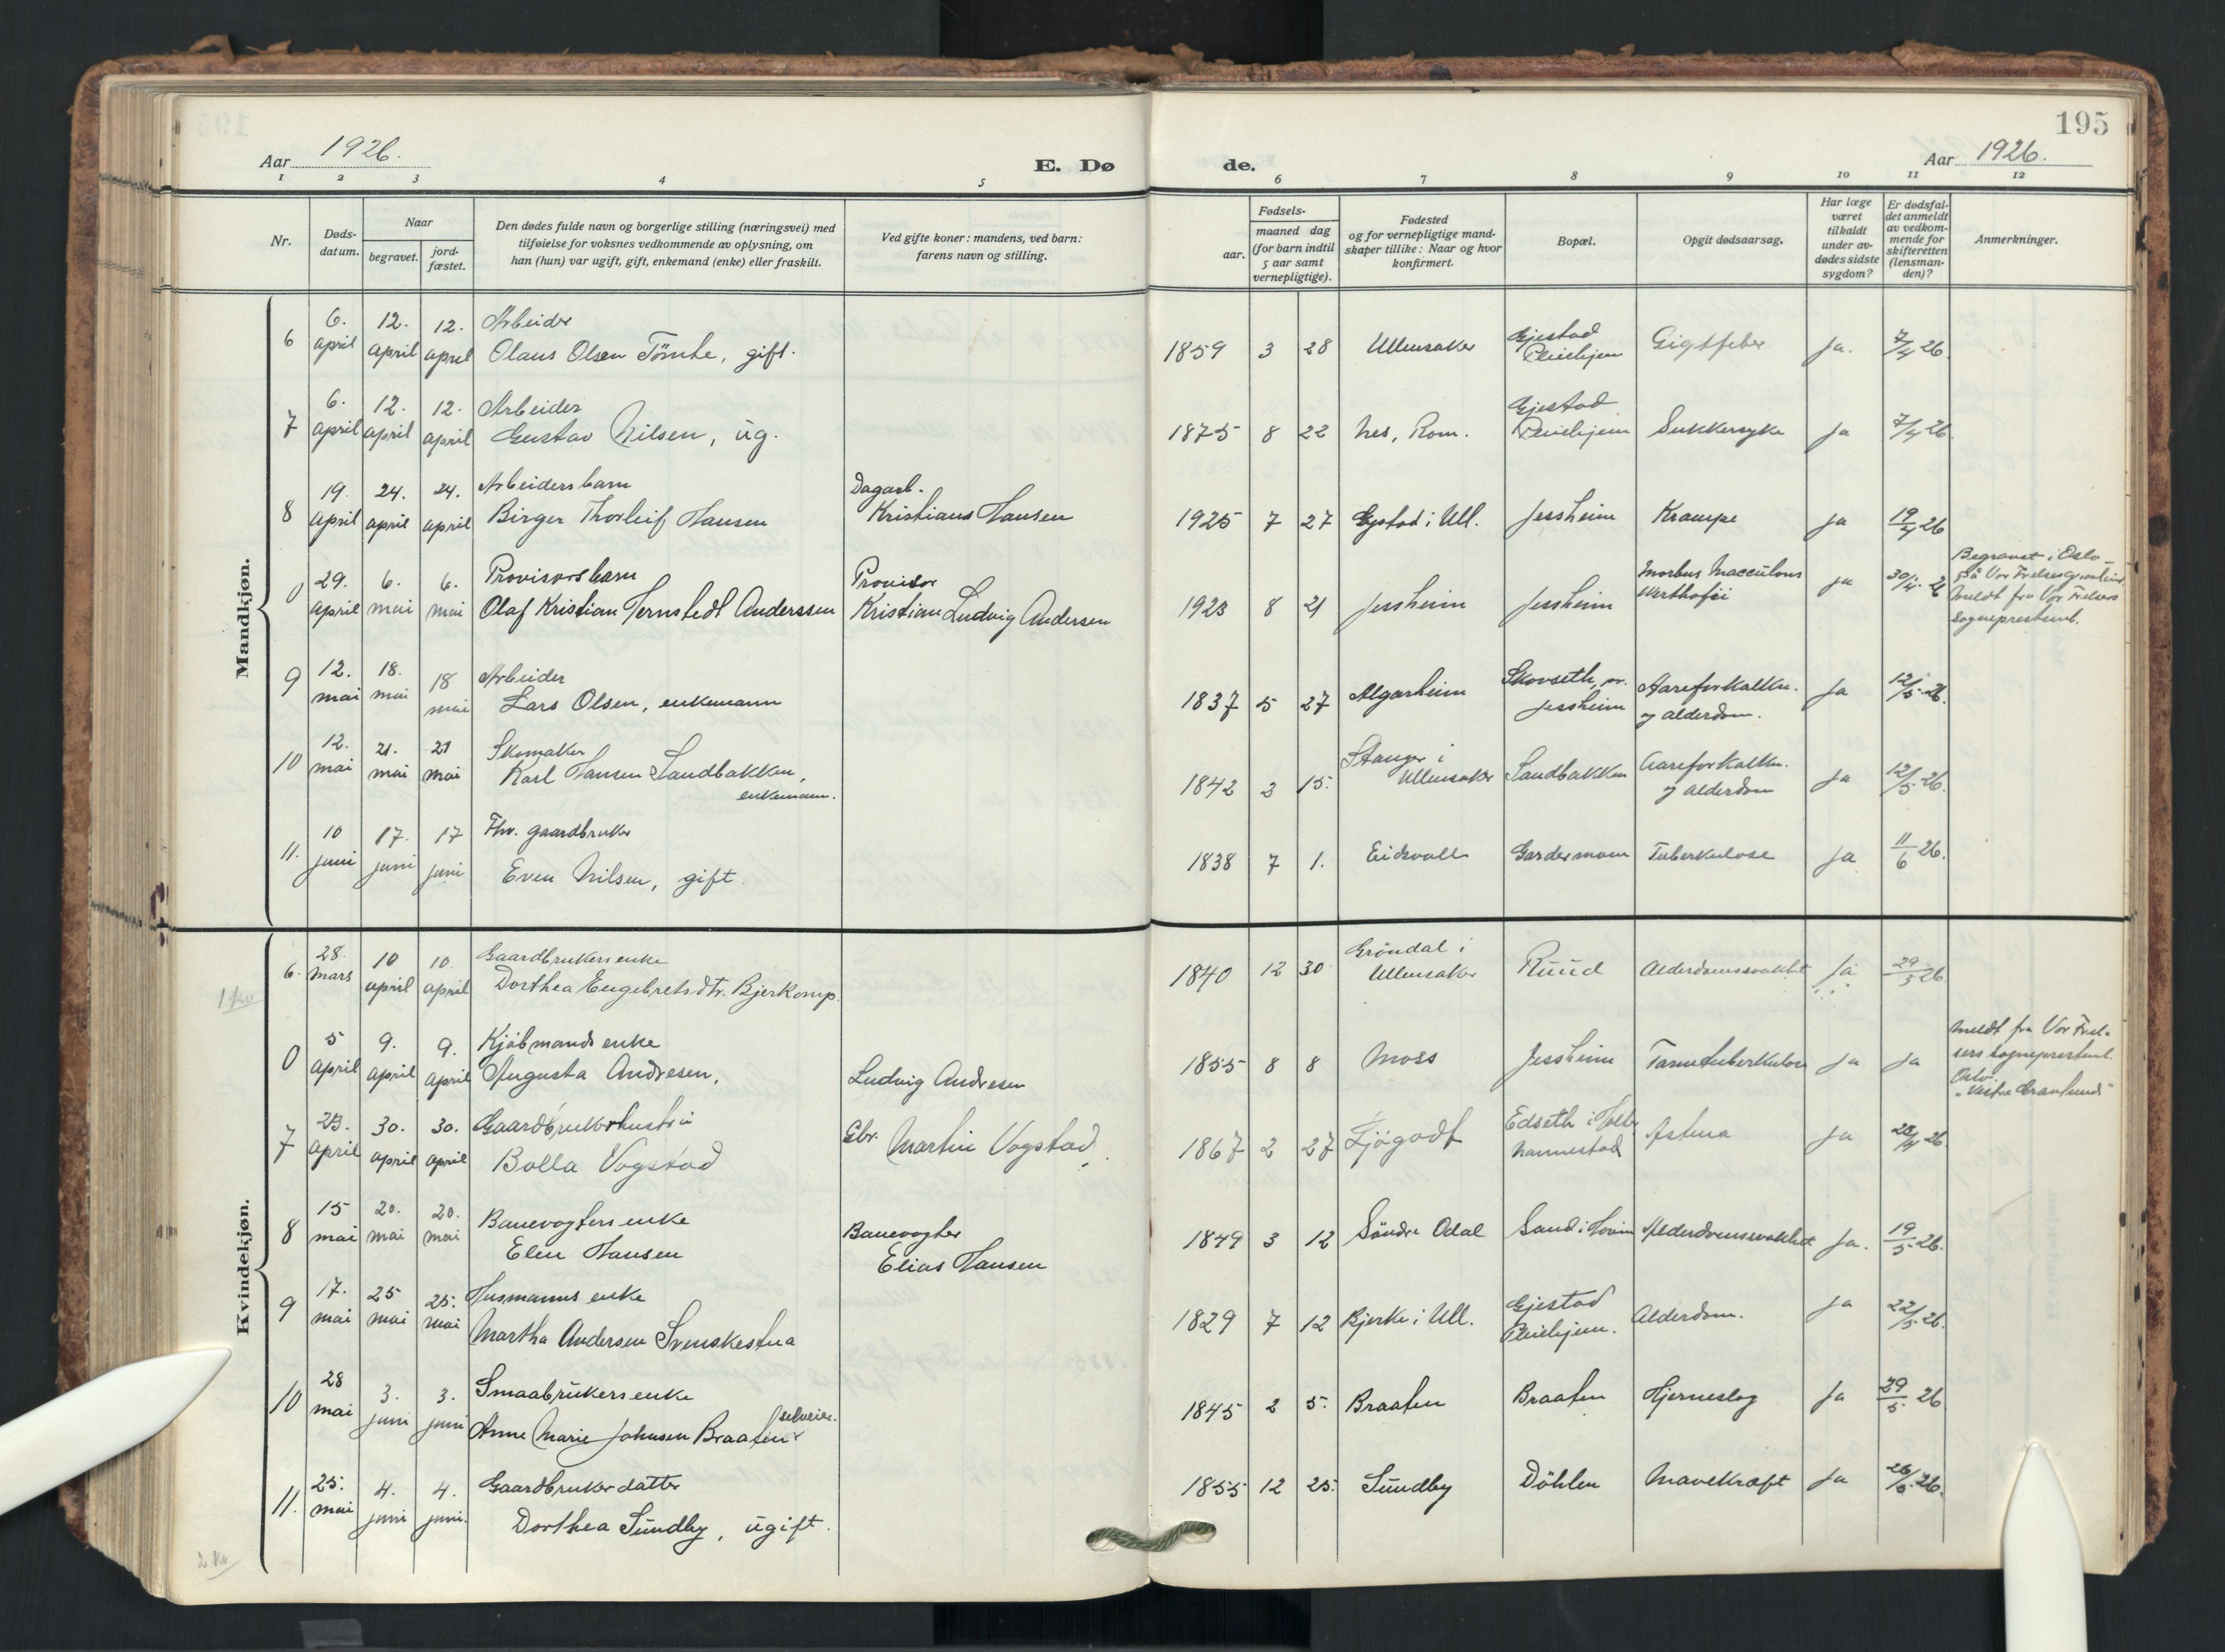 195
Aar 1926.
E. Døde.
Aar 1926.
1 2 3 4 5 6 7 8 9 10 11 12
Nr.
Døds-
datum.
Naar
begravet.
jord-
fæstet.
Den dødes fulde navn og borgerlige stilling (næringsvei) med
tilføielse for voksnes vedkommende av oplysning, om
han (hun) var ugift, gift, enkemand (enke) eller fraskilt.
Ved gifte koner: mandens, ved barn:
farens navn og stilling.
Fødsels-
aar.
maaned dag
(for barn indtil
5 aar samt
vernepligtige).
Fødested
og for vernepligtige mand-
skaper tillike: Naar og hvor
konfirmert.
Bopæl.
Opgit dødsaarsag.
Har læge
været
tilkaldt
under av-
dødes sidste
sygdom?
Er dødsfal-
det anmeldt
av vedkom-
mende for
skifteretten
(lensman-
den)?
Anmerkninger.
Mandkjøn.
6 6. april 12. april 12. april Arbeider
Olaus Olsen Tömte, gift. 1859 3 28 Ullensaker Gjestad Pleiehjem Gigtfeber ja. 7/4 26.
7 6. april 12. april 12. april Arbeider
Gustav Nilsen, ug. 1875 8 22 Nes, Rom. Gjestad Pleiehjem Sukkersyke ja 7/4 26.
8 19. april 24. april 24. april Arbeidersbarn
Birger Thorleif Hansen Dagarb. Kristians Hansen 1925 7 27 Gystad i Ull. Jessheim Krampe ja 19/4 26
0 29. april 6. mai 6. mai Provisorsbarn
Olaf Kristian Jernstedt Anderssen Provisor Kristian Ludvig Andersen 1923 8 21 Jessheim Jessheim Morbus Macculous Werlhofii ja 30/4. 26
Begravet i Oslo
på Vor Frelsers gravlund.
Meldt fra Vor Frelsers
Sogneprestemb.
9 12. mai 18. mai 18 mai Arbeider
Lars Olsen, enkemann 1837 5 27 Algarheim Skovseth, pr. Jessheim Aareforkalkn. og alderdom. ja 12/5 26.
10 12. mai 21. mai 21 mai Skomaker
Karl Hansen Sandbakken,
enkemann. 1842 3 15. Stanger i Ullensaker Sandbakken Aareforkalkn. og alderdom ja 12/5 26.
11. 10 juni 17. juni 17 juni Fhv. gaardbruker
Even Nilsen, gift. 1838 7 1. Eidsvoll Gardermoen Tuberkulose ja 11/6 26.
Kvindekjøn.
6. 28. mars 10 april 10. april Gaardbrukers enke
Dorthea Engebretsdtr. Bjerkomp. 1840 12 30 Gröndal i Ullensaker Ruud Alderdomssvakhet ja 29/3 26
0 5 april 9. april 9. april Kjöbmands enke
Augusta Andresen, Ludvig Andresen 1855 8 8 Moss Jessheim Tarmtuberkulose ja ja
Meldt fra Vor Frel-
sers sogneprestemb.
Oslo.
"Vestre Gravlund"
7 23. april 30. april 30. april Gaardbrukerhustru
Bolla Vogstad Gbr. Martin Vogstad. 1867 2 27 Ljögodt Edseth i Holt Nannestad Astma ja 28/4 26
8 15 mai 20. mai 20. mai Banevogters enke
Elen Hansen Banevogter Elias Hansen 1849 3 12 Söndre Odal Sand i Hovin Alderdomssvakhet ja. 19/5 26.
9 17. mai 25 mai 25. mai Husmanns enke
Martha Andersen Svenskestua 1829 7 12 Bjerke i Ull. Gjestad Pleiehjem. Alderdom. ja 22/5 26.
10 28 mai 3. juni 3. juni Smaabrukers enke
Anne Marie Johnsen Braaten selveier. 1845 2 5. Braaten Braaten Hjerneslag ja 29/5. 26
11. 25. mai 4. juni 4. juni. Gaardbruker datter
Dorthea Sundby, ugift. 1855 12 25. Sundby Döhlen Mavekræft ja 26/5. 26.